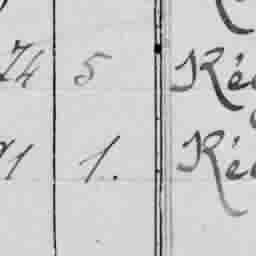 74 5 Ré
71 1. Ré